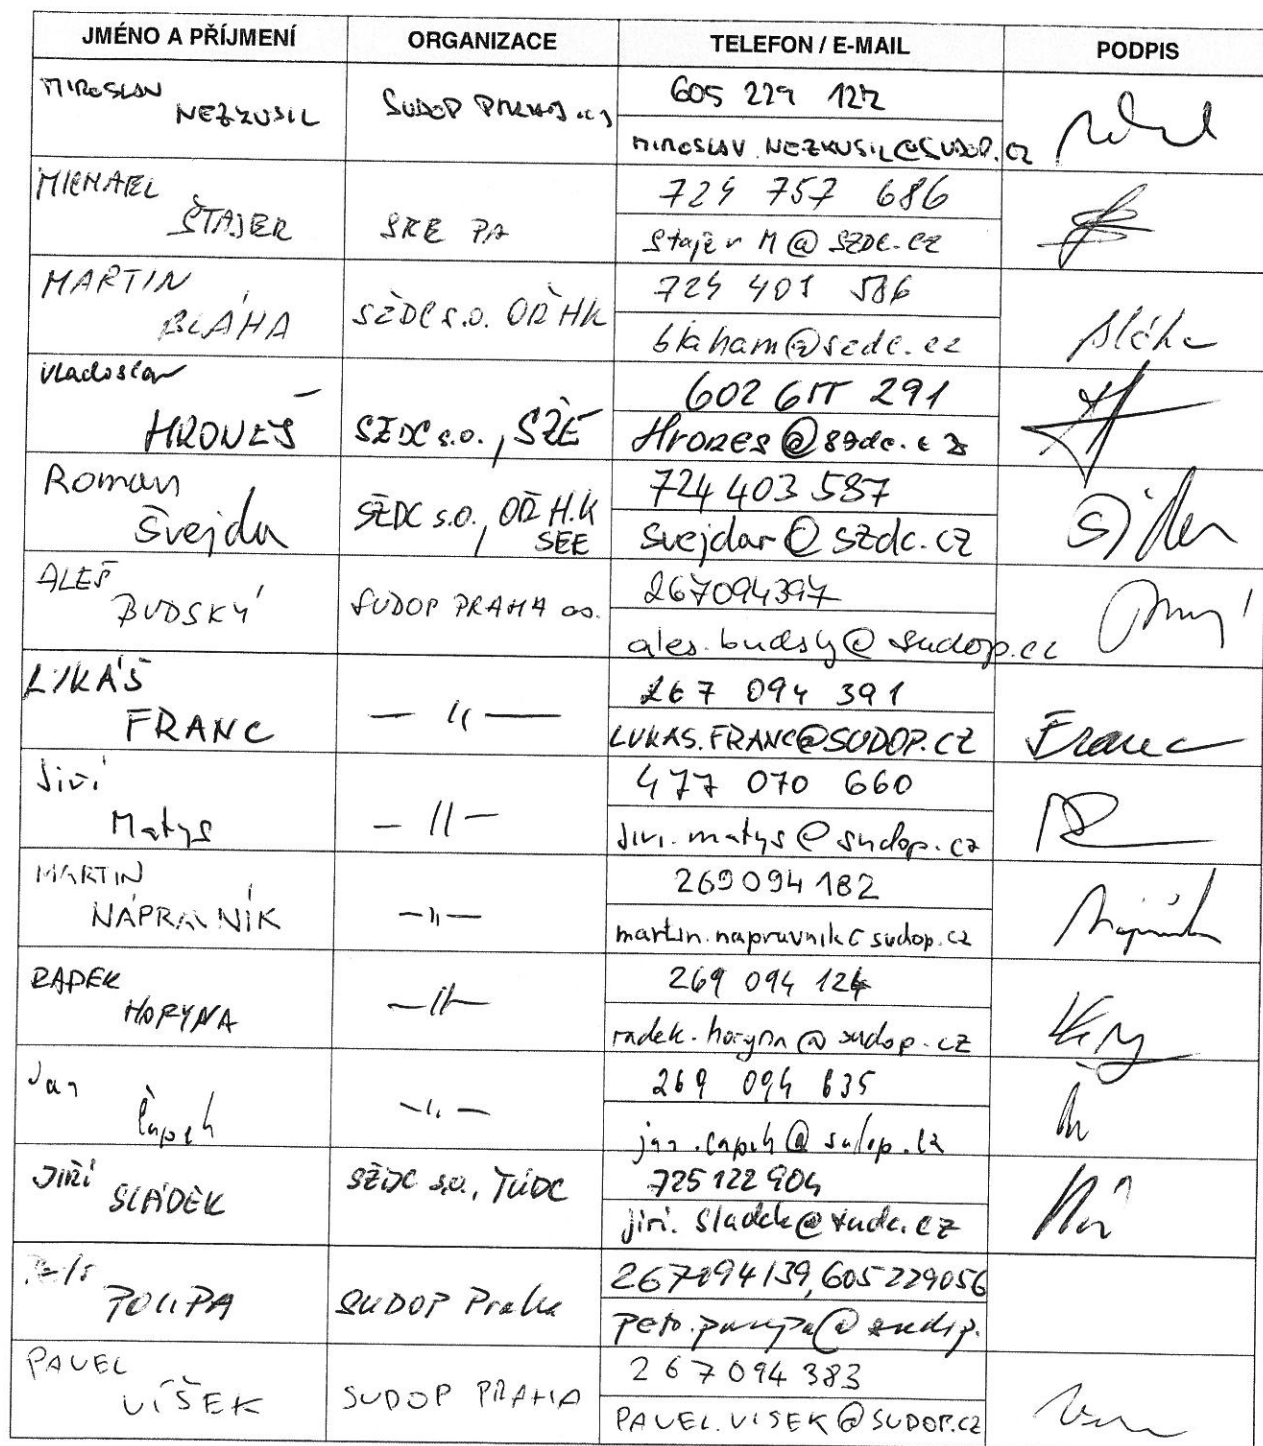 JMÉNO A PŘÍJMENÍ ORGANIZACE TELEFON / E-MAIL PODPIS
MIROSLAV
NEZKUSIL SUDOP PRAHA a.s.
605 229 122
MIROSLAV.NEZKUSIL@SUDOP.CZ
MICHAEL
ŠTAJER SŽE PA
724 757 686
StajerM@SZDC.CZ
MARTIN
BLÁHA SŽDC s.o. OŘ HK
724 401 586
blaham@szdc.cz
Bláha
Vladoslav
HRONEŠ SŽDC s.o., SŽE
602 655 291
Hrones@szdc.cz
Roman
Švejda SŽDC s.o., OŘ H.K
SEE
724 403 587
svejdar@szdc.cz
ALEŠ
BUDSKÝ SUDOP PRAHA as.
267094397
ales.budsky@sudop.cz
LUKÁŠ
FRANC — 11 —
267 094 391
LUKAS.FRANC@SUDOP.CZ
Franc
Jiří
Matys — 11 —
477 070 660
jiri.matys@sudop.cz
MARTIN
NÁPRAVNÍK — 11 —
269094182
martin.napravnik@sudop.cz
RADEK
HORYNA — 11 —
269 094 124
radek.horyna@sudop.cz
Jan
Čapek — 11 —
269 094 635
jan.capek@sudop.cz
JIŘÍ
SLÁDEK SŽDC s.o., TÚDC
725 122 904
jiri.sladek@tudc.cz
POUPA SUDOP Praha
267094139, 605229056
PAVEL
VÍŠEK SUDOP PRAHA
267094383
PAVEL.VISEK@SUDOP.CZ